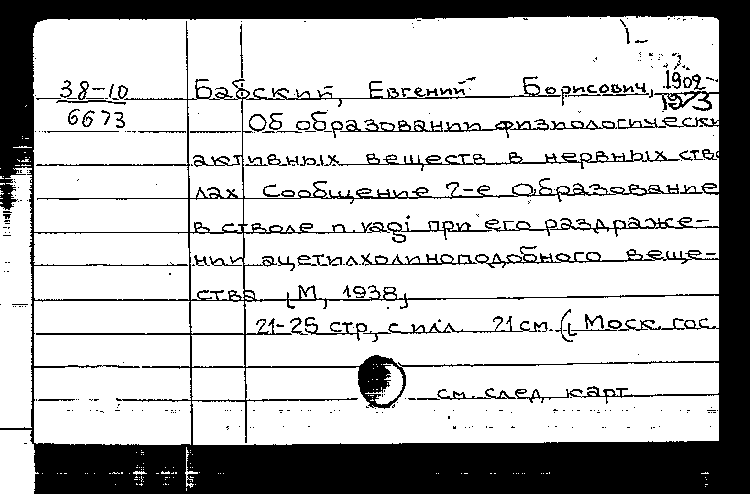 38-10
6673
Бабский, Евгений Борисович, 1902-
1973
Об образовании физиологически
активных веществ в нервных ство
лах Сообщение 2-е Образование
в стволе n. vagi при его раздраже-
нии ацетилхолиноподобного веще-
ства. [М, 1938]
21-25 стр, с илл. 21 см. ([Моск. гос.
см. след. карт.